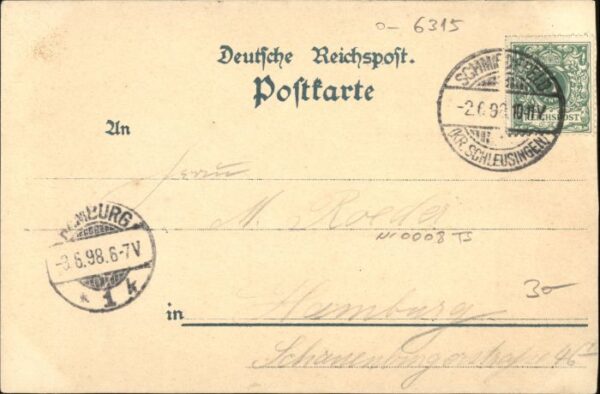 o- 6315
Deutsche Reichspost.
Postkarte
SCHMIEDEFELD
-2.6.98.10-11V
(KR.SCHLEUSINGEN)
REICHSPOST
An
Herrn
M. Roeder
N10008 TS
HAMBURG
-3.6.98.6-7V
* 1 k
30-
in Hamburg
Schauenburgerstrasse 46 I